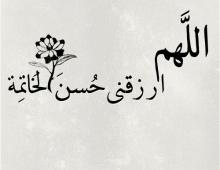 اللَّهم
ارزقنى حُسنَ الخاتِمة